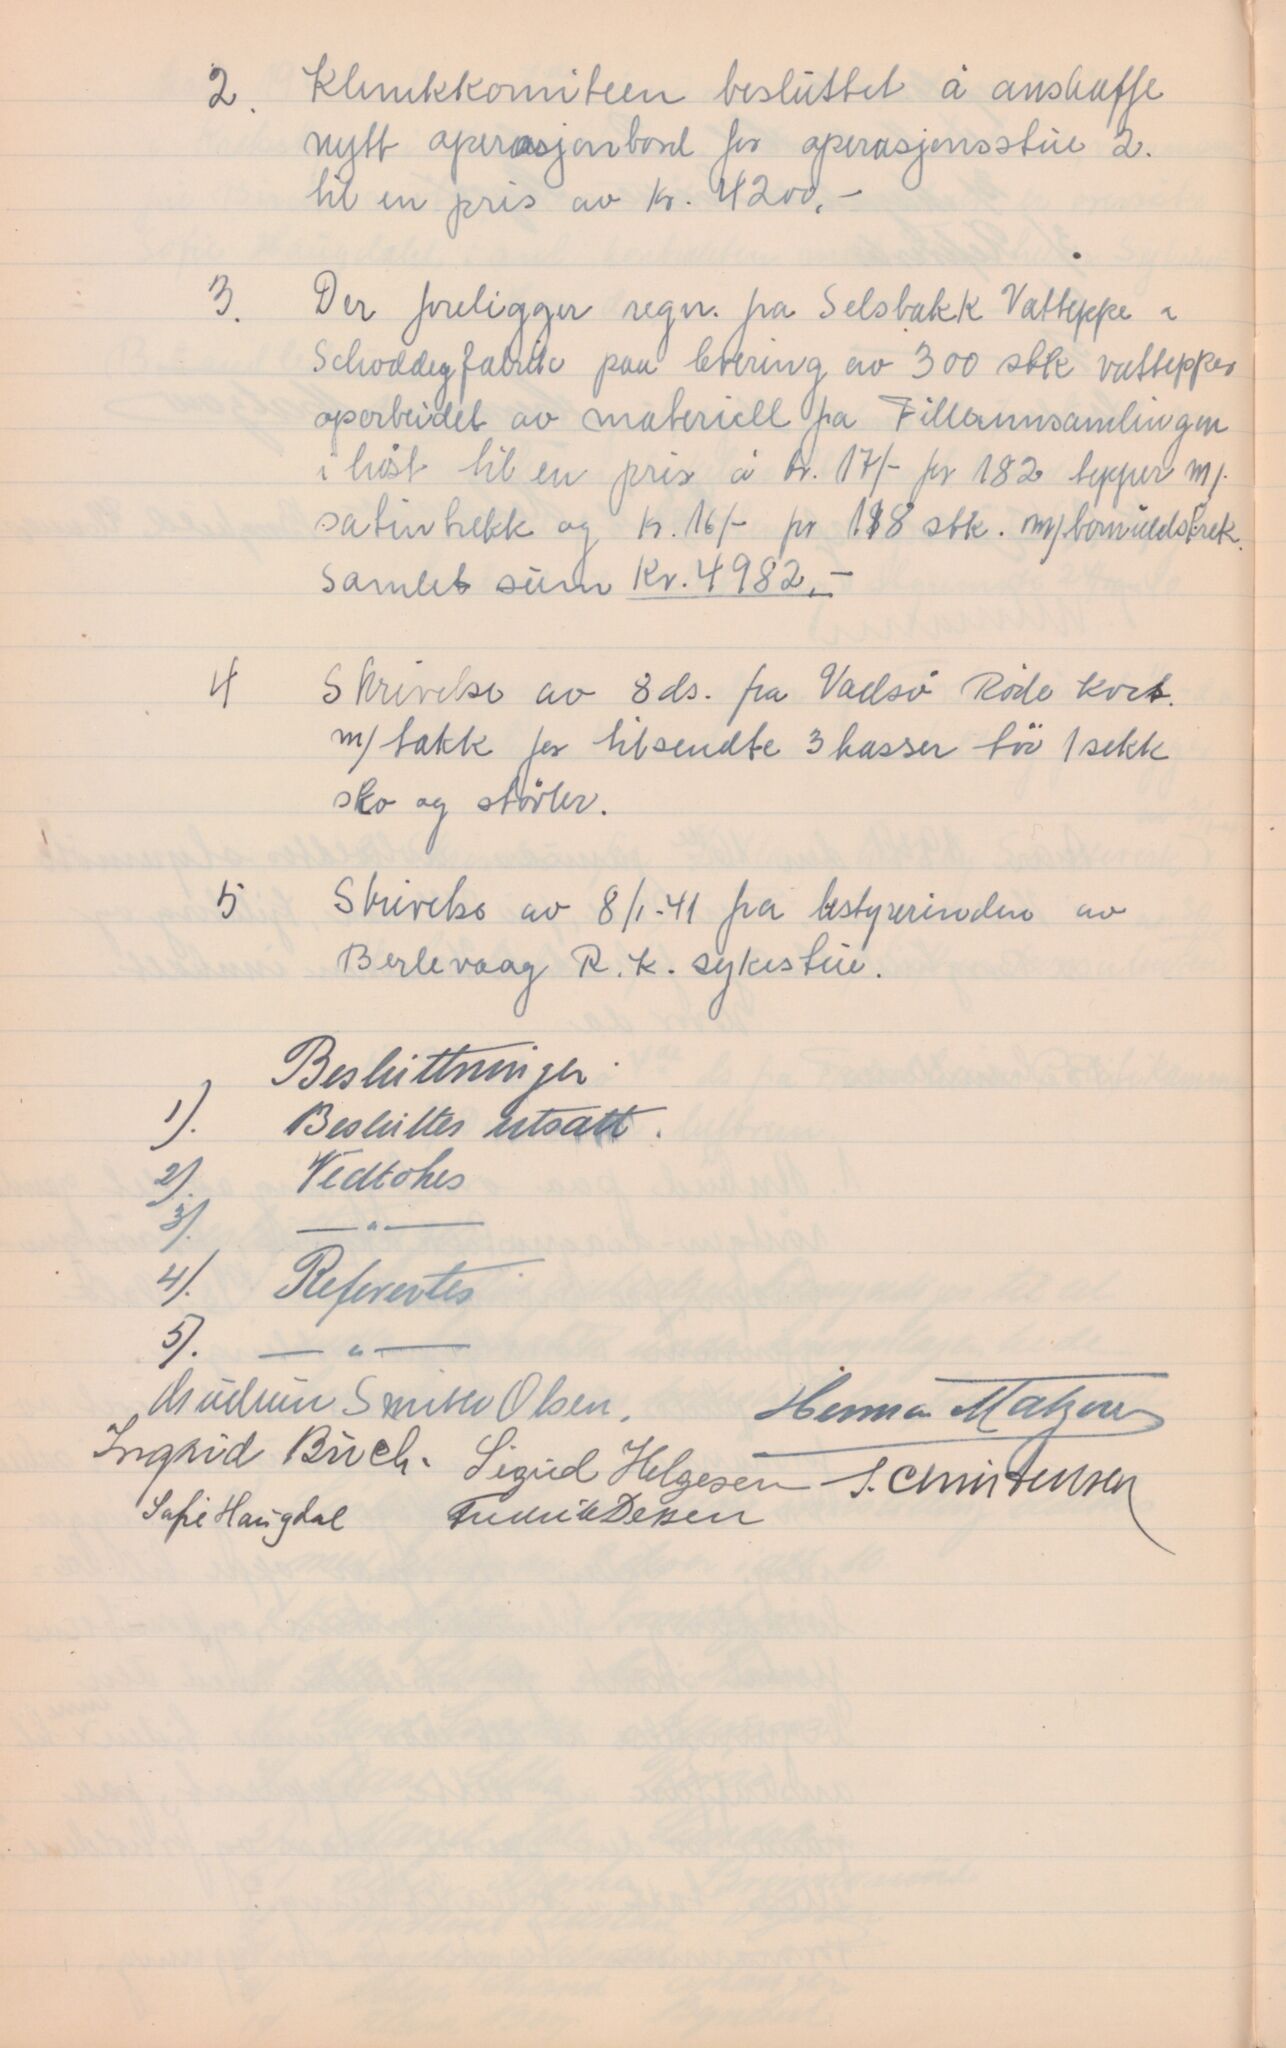 2. Klinikkomiteen besluttet å anskaffe
nytt operasjonbord for operasjonsstue 2.
til en pris av kr. 4200,-
3. Der foreligger regn. fra Selsbakk Vatteppe &
Schoddyfabrik paa levering av 300 stk vattepper
oparbeidet av materiell fra Filleinnsamlingen
i høst til en pris å kr. 17/- for 182 tepper m/.
satintrekk og kr. 16/- pr 118 stk. m/bomuldstrek.
Samlet sum Kr. 4982,-
4 Skrivelse av 8 ds. fra Vadsø Røde Kors.
m/takk for tilsendte 3 kasser tøi 1 sekk
sko og støvler.
5 Skrivelse av 8/1-41 fra bestyrerinden av
Berlevaag R.K. sykestue.
Beslutninger.
1). Besluttes utsatt.
2). Vedtokes
3). —"—
4). Refereertes
5). —"—
Gudrun Smith Olsen. Herman Matzow
Ingrid Buch. Sigrid Helgesen S. Christensen
Sofie Haugdal Fredrik